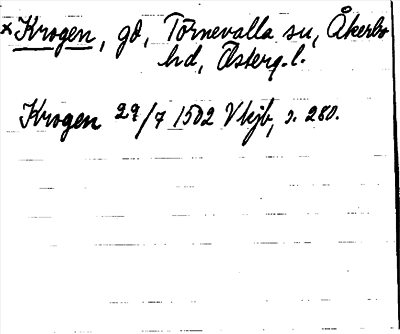 *Krogen, gd, Törnevalla sn, Åkerbo
hd, Österg.l.
Krogen 29/7 1502 Vkjb, s. 280.